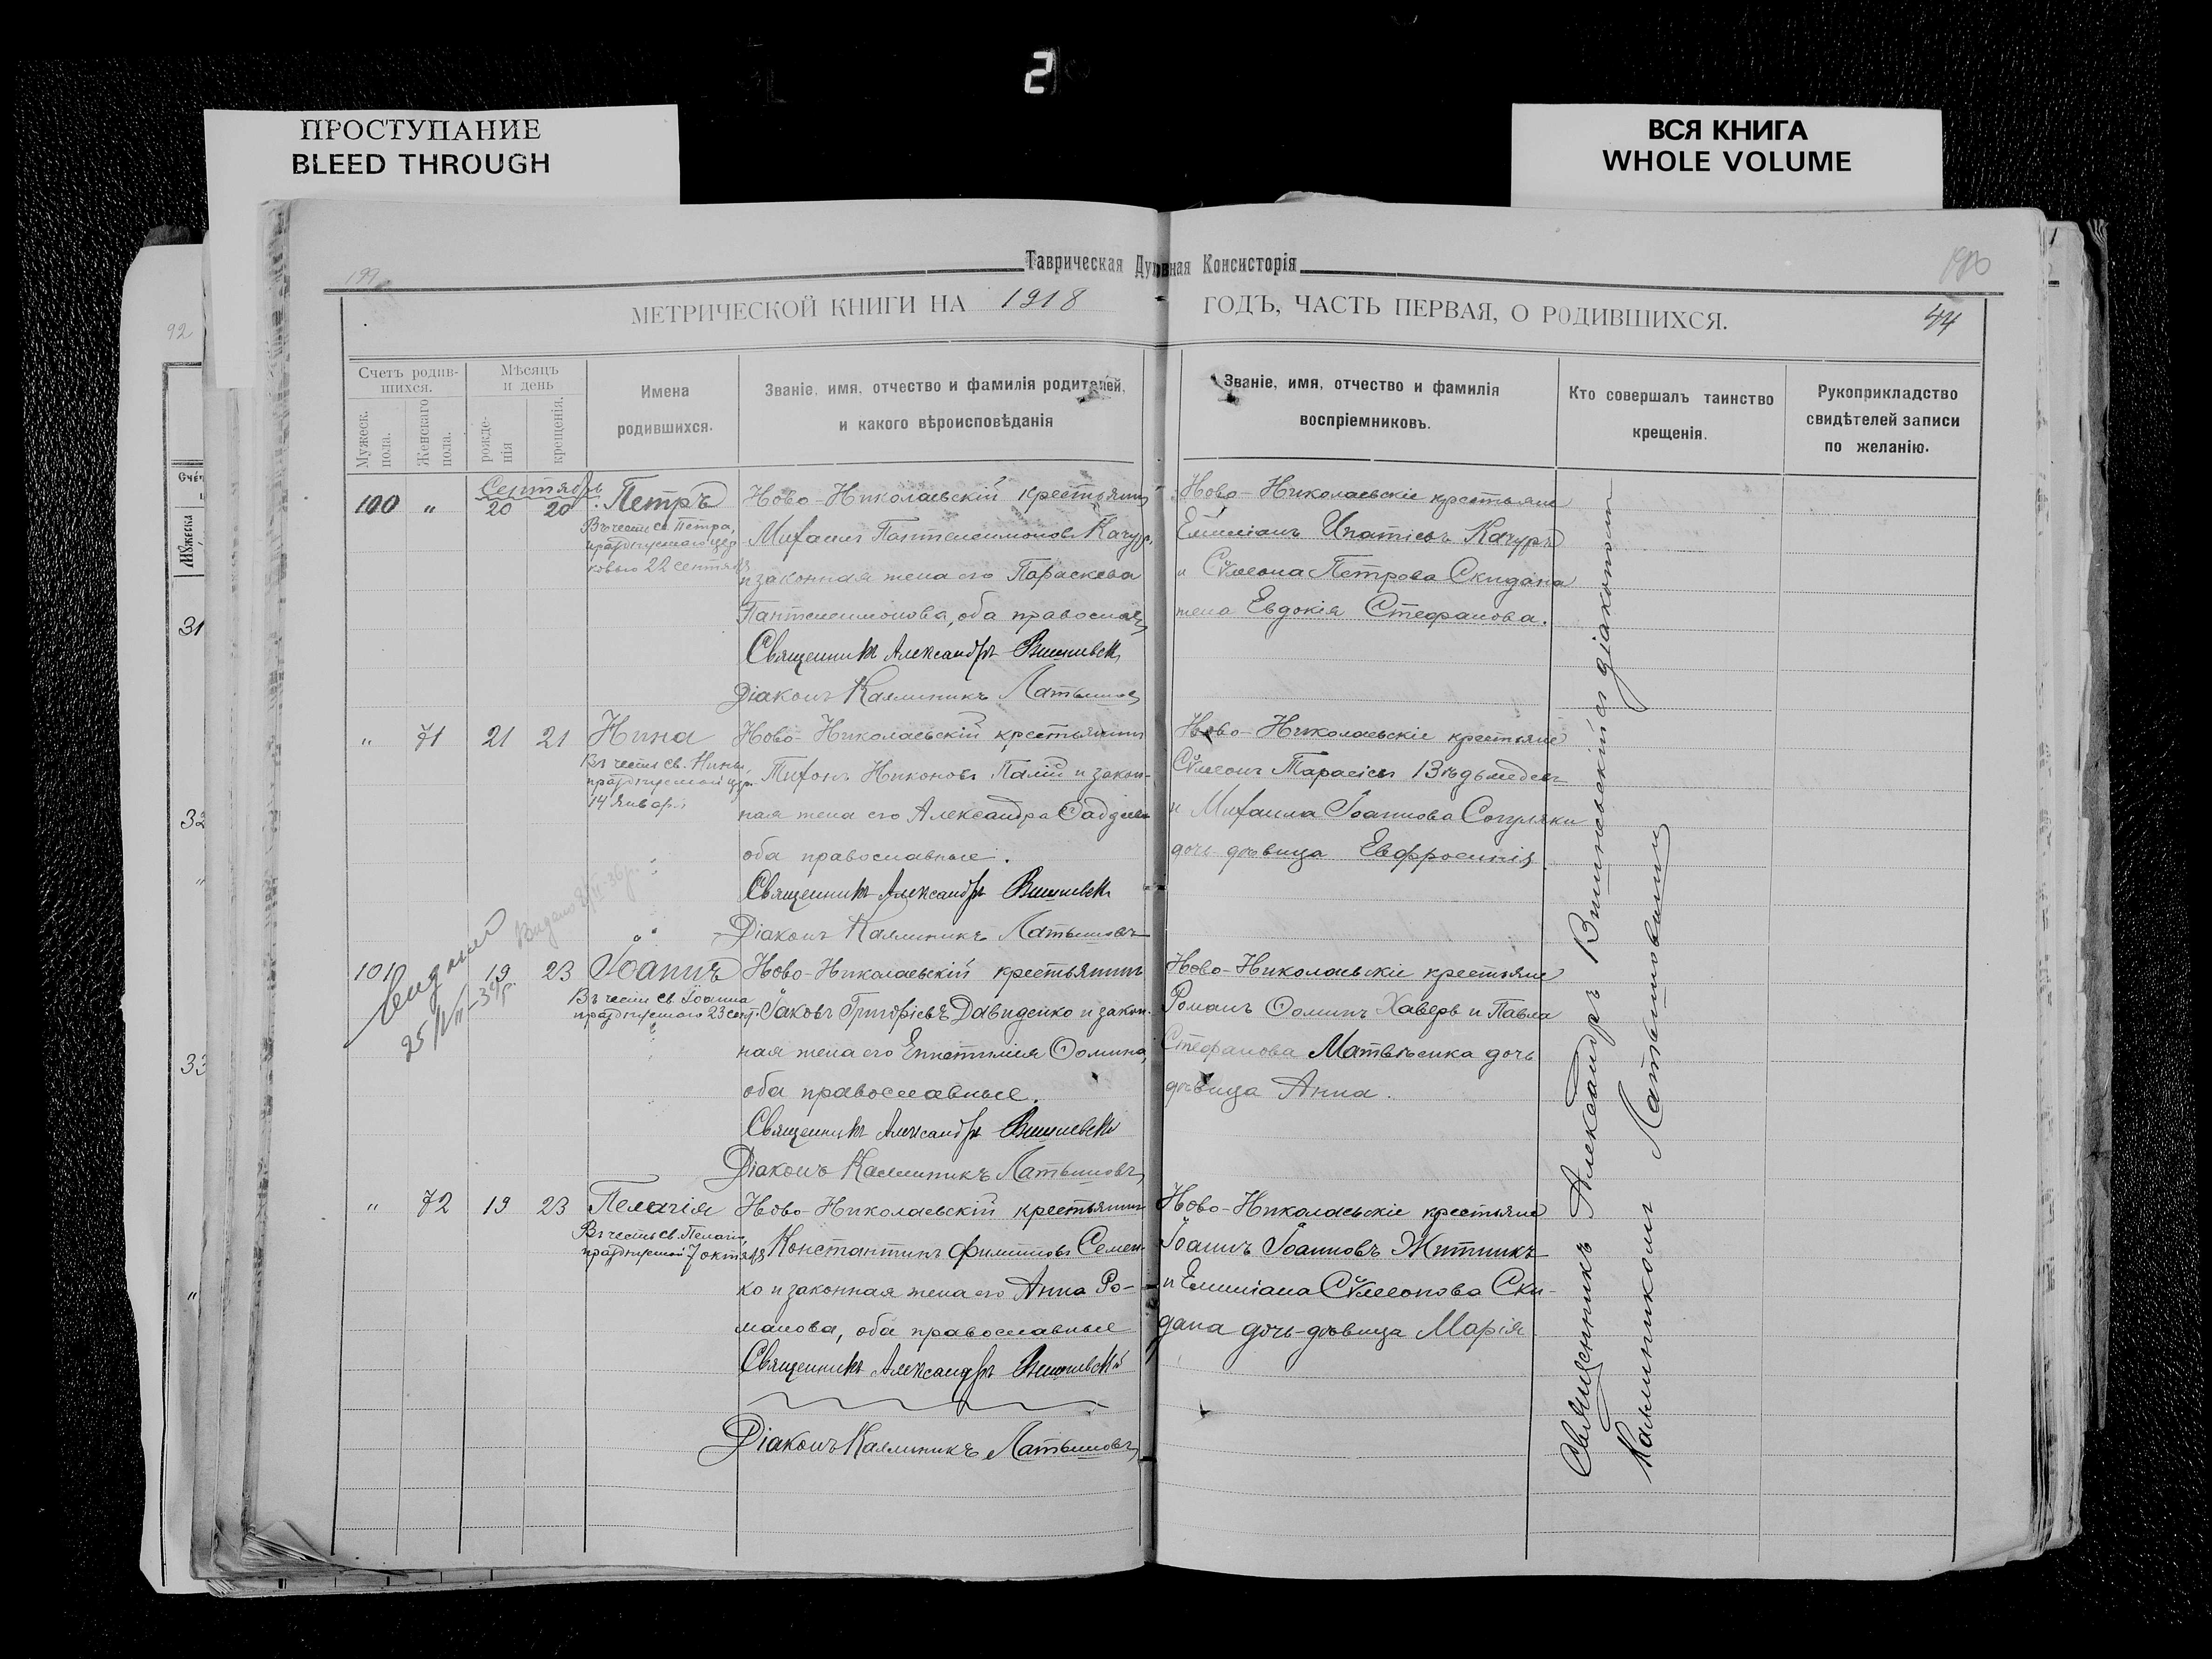 2
ПРОСТУПАНИЕ
BLEED THROUGH
ВСЯ КНИГА
WHOLE VOLUME
Таврическая Духовная Консисторія
МЕТРИЧЕСКОЙ КНИГИ НА 1918 ГОДЪ, ЧАСТЬ ПЕРВАЯ, О РОДИВШИХСЯ.
44
92
Счетъ родив-
шихся.
Мужеск.
пола.
Женскаго
пола.
Мѣсяцъ
и день
рожде-
нія
крещенія.
Имена
родившихся.
Званіе, имя, отчество и фамилія родителей,
и какого вѣроисповѣданія
Званіе, имя, отчество и фамилія
воспріемниковъ.
Кто совершалъ таинство
крещенія.
Рукоприкладство
свидѣтелей записи
по желанію.
Сентябрь
100 " 20 20 Петръ
Въ честь св. Петра,
празднуемаго цер
ковью 22 сентября
Ново-Николаевскій крестьянин
Михаилъ Пантелеимоновъ Качур.
и законная жена его Параскева
Пантелеимонова, оба православн
Священникъ Александръ Вишневск
Діаконъ Каллиникъ Латышов
Ново-Николаевскіе крестьяне
Емиліанъ Ипатіевъ Качуръ
и Сѵмеона Петрова Скидана
жена Евдокія Стефанова.
" 71 21 21 Нина
Въ честь св. Нины,
празднуемой цер.
14 января
Ново-Николаевскій крестьянинъ
Тихонъ Никоновъ Палій и закон-
ная жена его Александра Ѳаддеева
оба православные.
Священникъ Александръ Вишневск
Діаконъ Каллиникъ Латышовъ
Ново-Николаевскіе крестьяне
Сѵмеонъ Тарасіевъ
и Михаила Іоаннова
дочь дѣвица Евфросинія.
101 19 23 Іоаннъ
Въ честь св. Іоанна
празднуемаго 23 сент.
Ново-Николаевскій крестьянинъ
Іаковъ Григоріевъ Давиденко и закон.
ная жена его Епистимія Ѳомина,
оба православные.
Священникъ Александръ Вишневск
Діаконъ Каллиникъ Латышовъ
Ново-Николаевскіе крестьяне
Романъ Ѳоминъ Хаверь и Павла
Стефанова Матвѣенка дочь
дѣвица Анна.
" 72 19 23 Пелагія
Въ честь св. Пелагіи,
празднуемой 7 октября
Ново-Николаевскій крестьянинъ
Константинъ Филиповъ Семен-
ко и законная жена его Анна Ро-
манова, оба православные
Священникъ Александръ Вишневскій
Діаконъ Каллиникъ Латышовъ
Ново-Николаевскіе крестьяне
Іоаннъ Іоанновъ Житникъ
и Емиліана Сѵмеонова Ски-
дана дочь-дѣвица Марія
Священникъ Александръ Вишневскій съ діакономъ
Каллиникомъ Латышовымъ
31
32
33